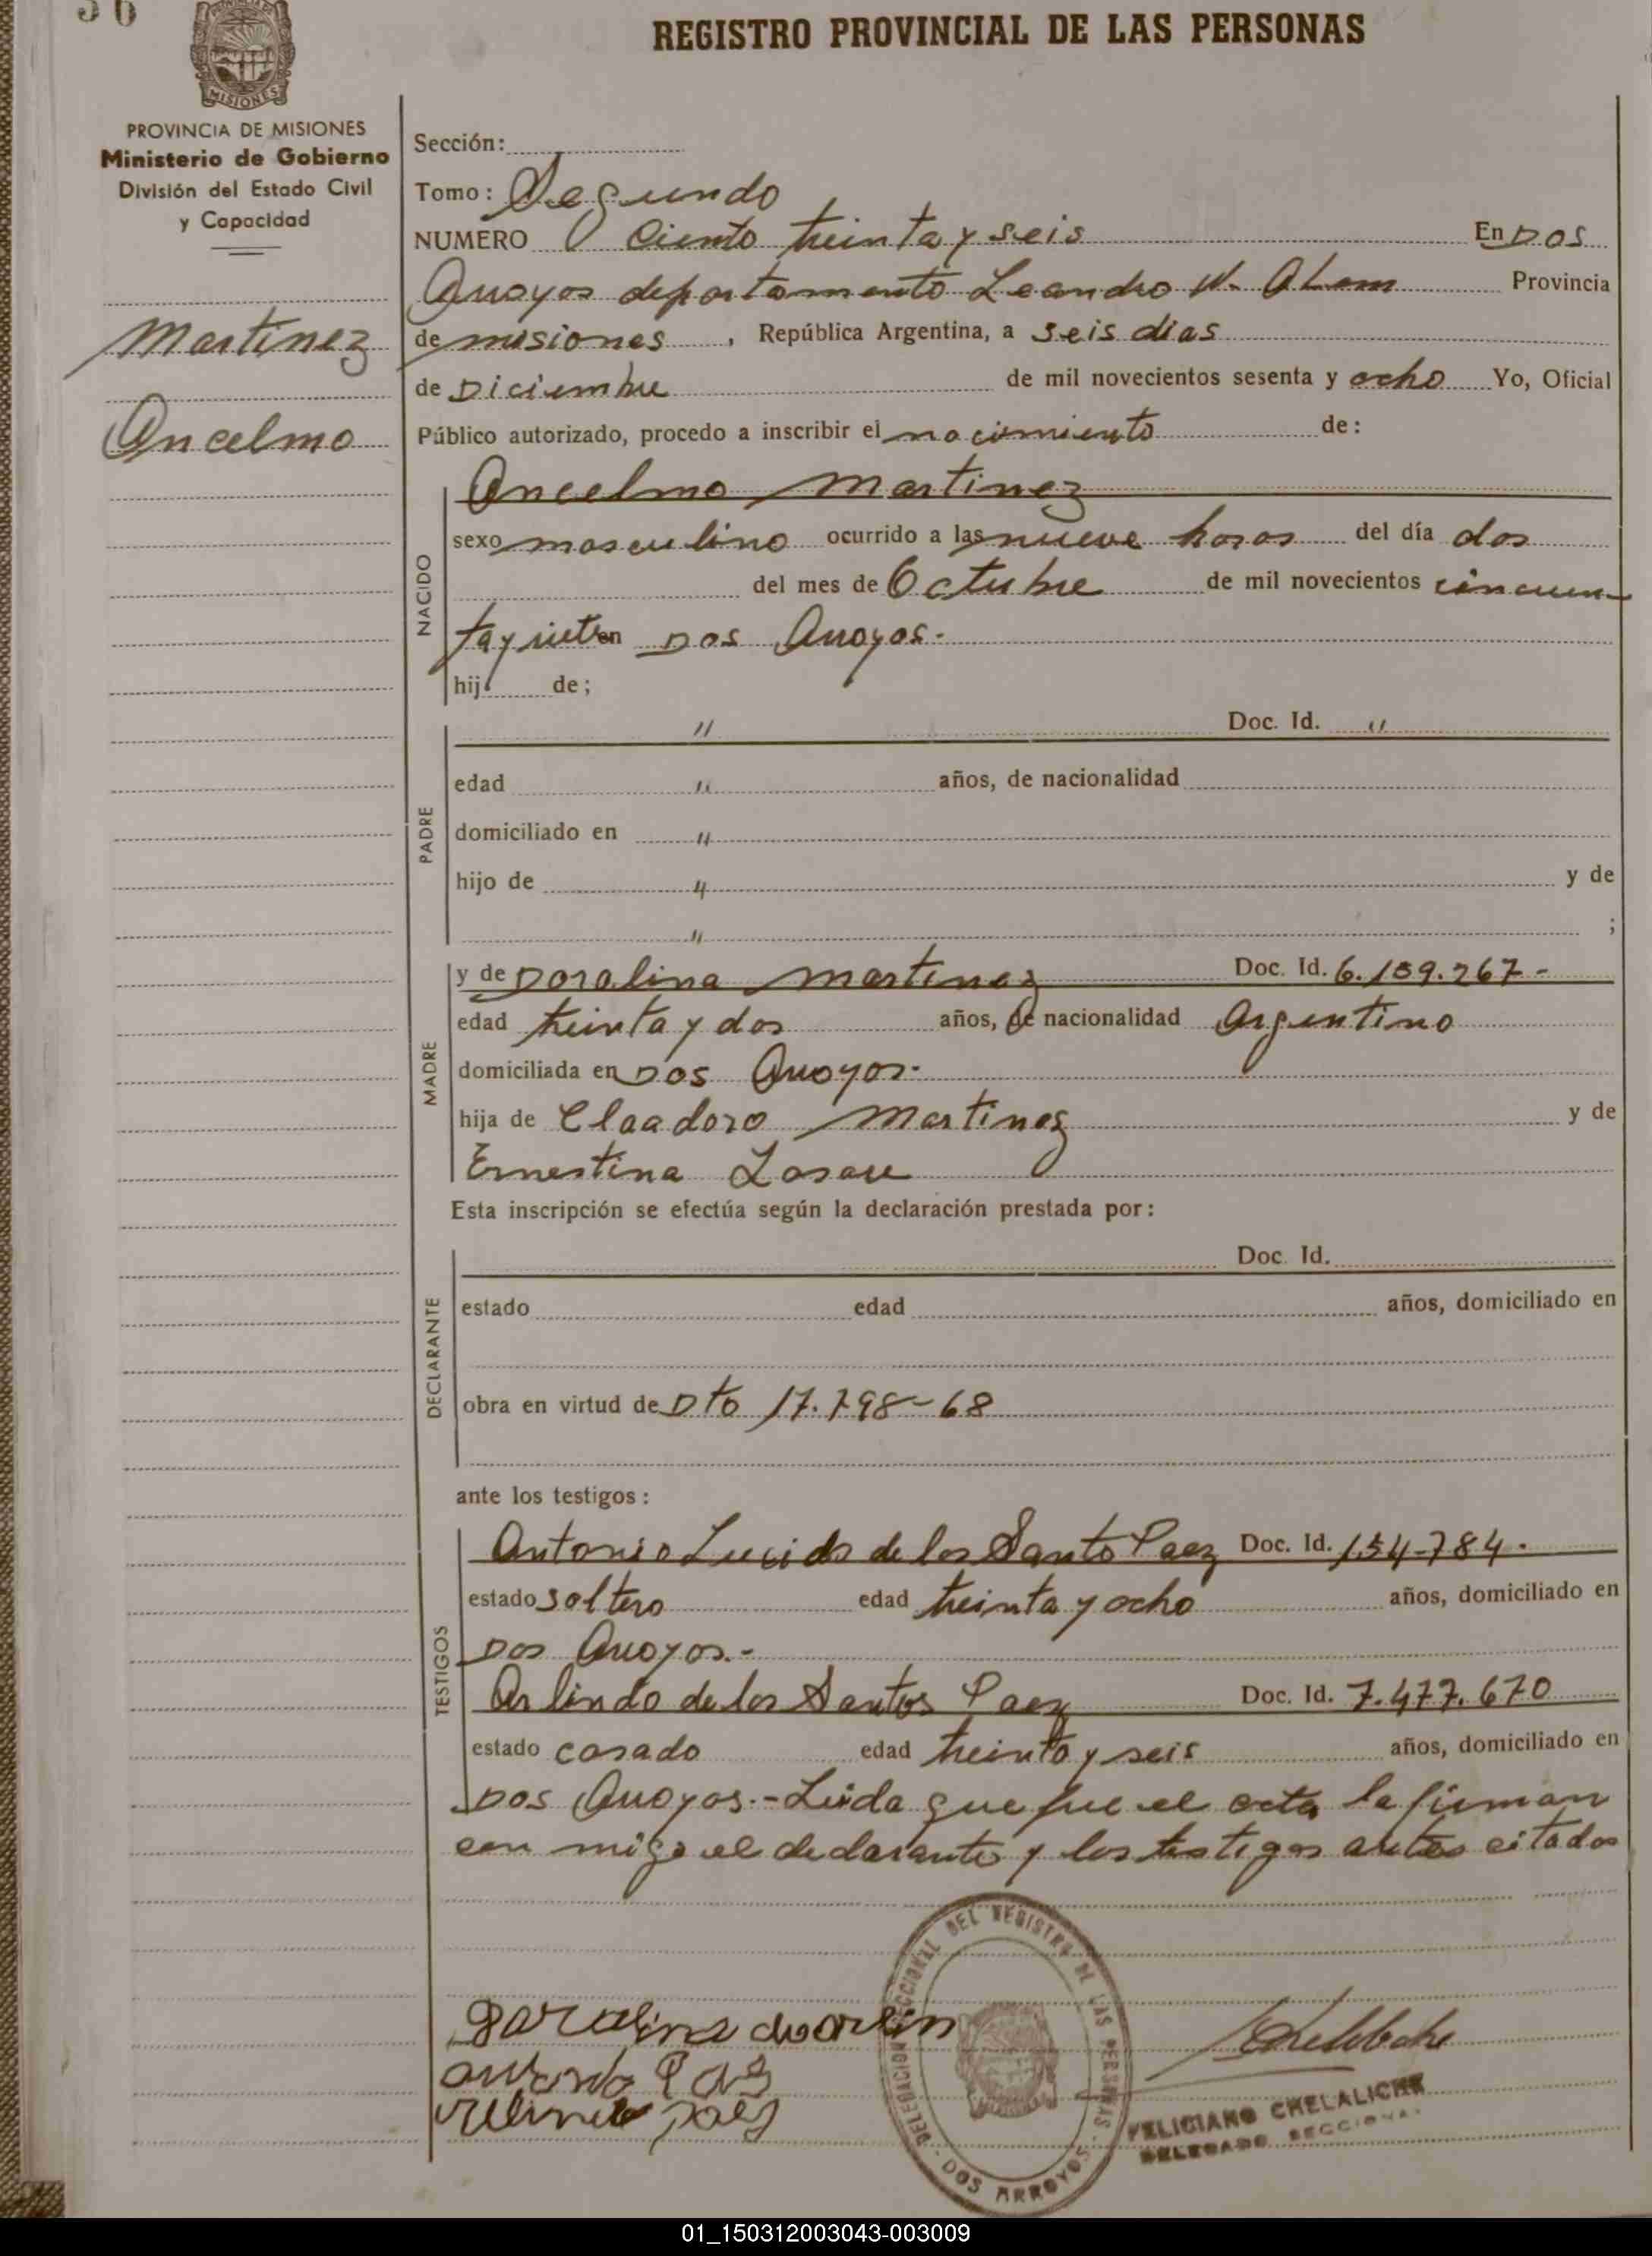 36
REGISTRO PROVINCIAL DE LAS PERSONAS
MISIONES
PROVINCIA DE MISIONES
Ministerio de Gobierno
División del Estado Civil
y Capacidad
Martínez
Ancelmo
Sección:
Tomo: Segundo
NUMERO Ciento treinta y seis En Dos
Arroyos departamento Leandro N. Alem Provincia
de misiones, República Argentina, a seis dias
de Diciembre de mil novecientos sesenta y ocho Yo, Oficial
Público autorizado, procedo a inscribir el nacimiento de:
NACIDO
Ancelmo Martinez
sexo masculino ocurrido a las nueve horas del día dos
del mes de Octubre de mil novecientos cincuen-
ta y siete en Dos Arroyos.-
hijo de;
PADRE
" Doc. Id. "
edad " años, de nacionalidad
domiciliado en "
hijo de " y de
" ;
MADRE
y de Doralina Martinez Doc. Id. 6.159.267-
edad treinta y dos años, de nacionalidad Argentino
domiciliada en Dos Arroyos.-
hija de Claadoro Martinez y de
Ernestina
Esta inscripción se efectúa según la declaración prestada por:
DECLARANTE
Doc. Id.
estado edad años, domiciliado en
obra en virtud de Dto 17.798-68
ante los testigos:
TESTIGOS
Antonio Lucido de los Santo Paez Doc. Id. 154-784.
estado soltero edad treinta y ocho años, domiciliado en
Dos Arroyos.-
Arlindo de los Santos Paez Doc. Id. 7.477.670
estado casado edad treinta y seis años, domiciliado en
Dos Arroyos.- Leida que fue el acta la firman
con migo el declarante y los testigos antes citados
DELEGACION SECCIONAL DEL REGISTRO DE LAS PERSONAS
DOS ARROYOS
FELICIANO CHELALICHE
DELEGADO SECCIONAL
01_150312003043-003009